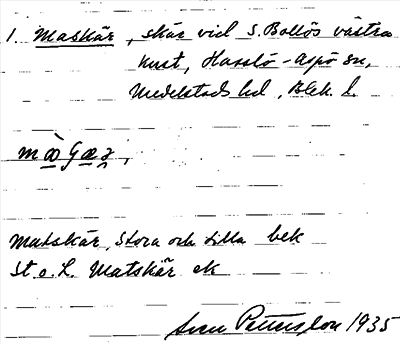 1. Maskär, skär vid S. Bollös västra
kust, Hasslö-Aspö sn,
Medelstads hd, Blek. l.
Matskär, Stora och Lilla bek
St. o. L. Matskär ek
Sven Pettersson 1935